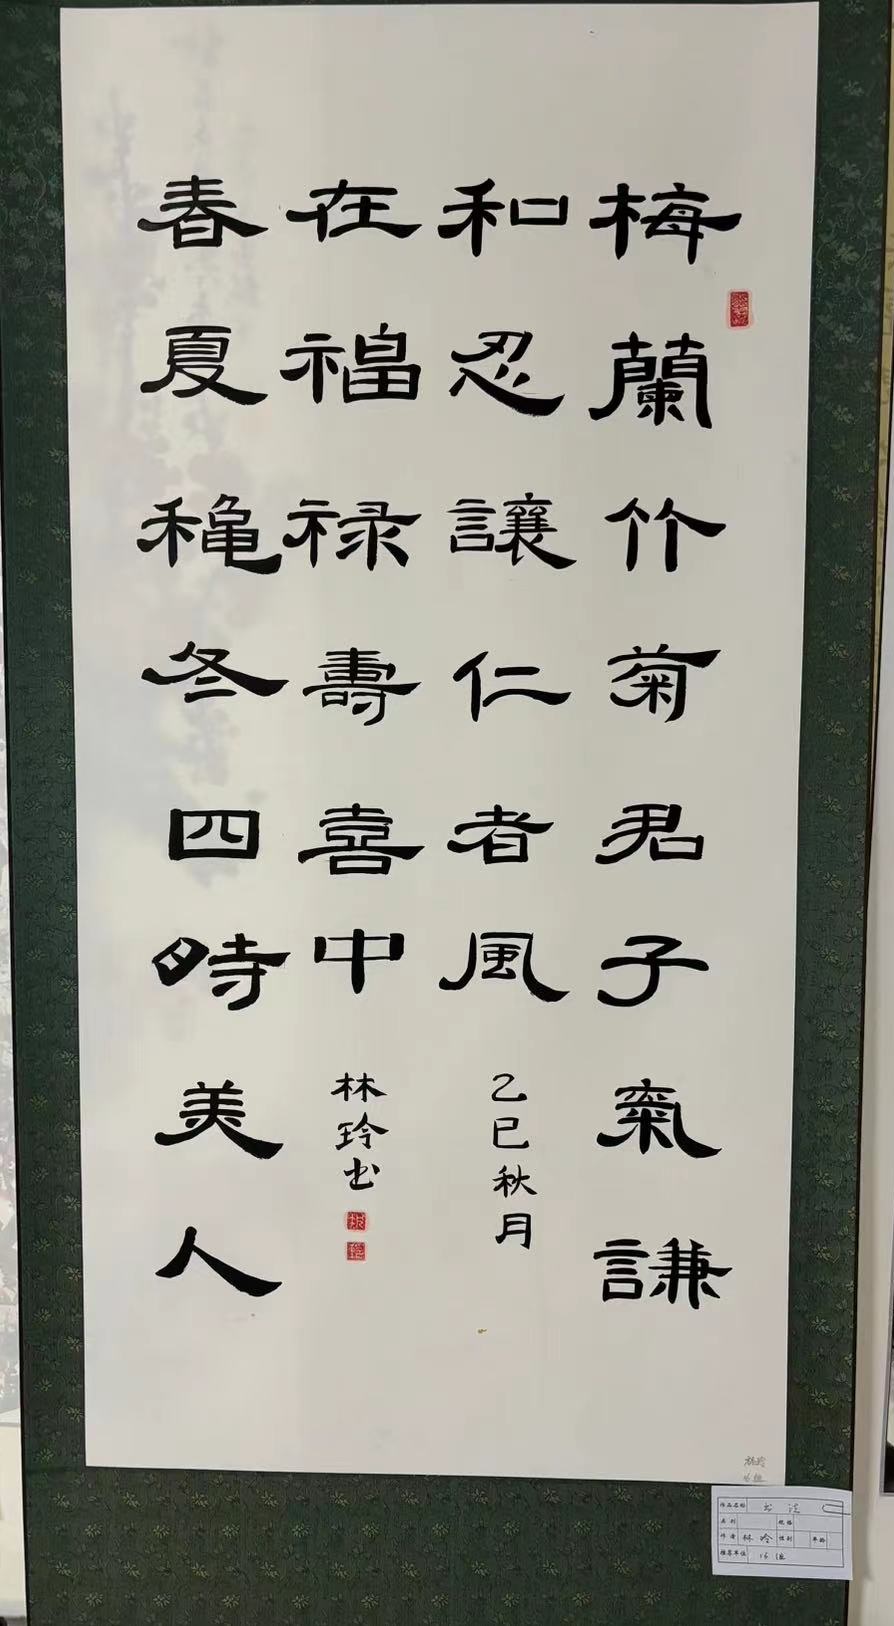 梅蘭竹菊君子氣謙
和忍讓仁者風
乙巳秋月
春夏穐冬四時美人
在福禄壽喜中
林玲书
作品名称 书法
类别 规格
作者 林玲 性别 年龄
推荐单位